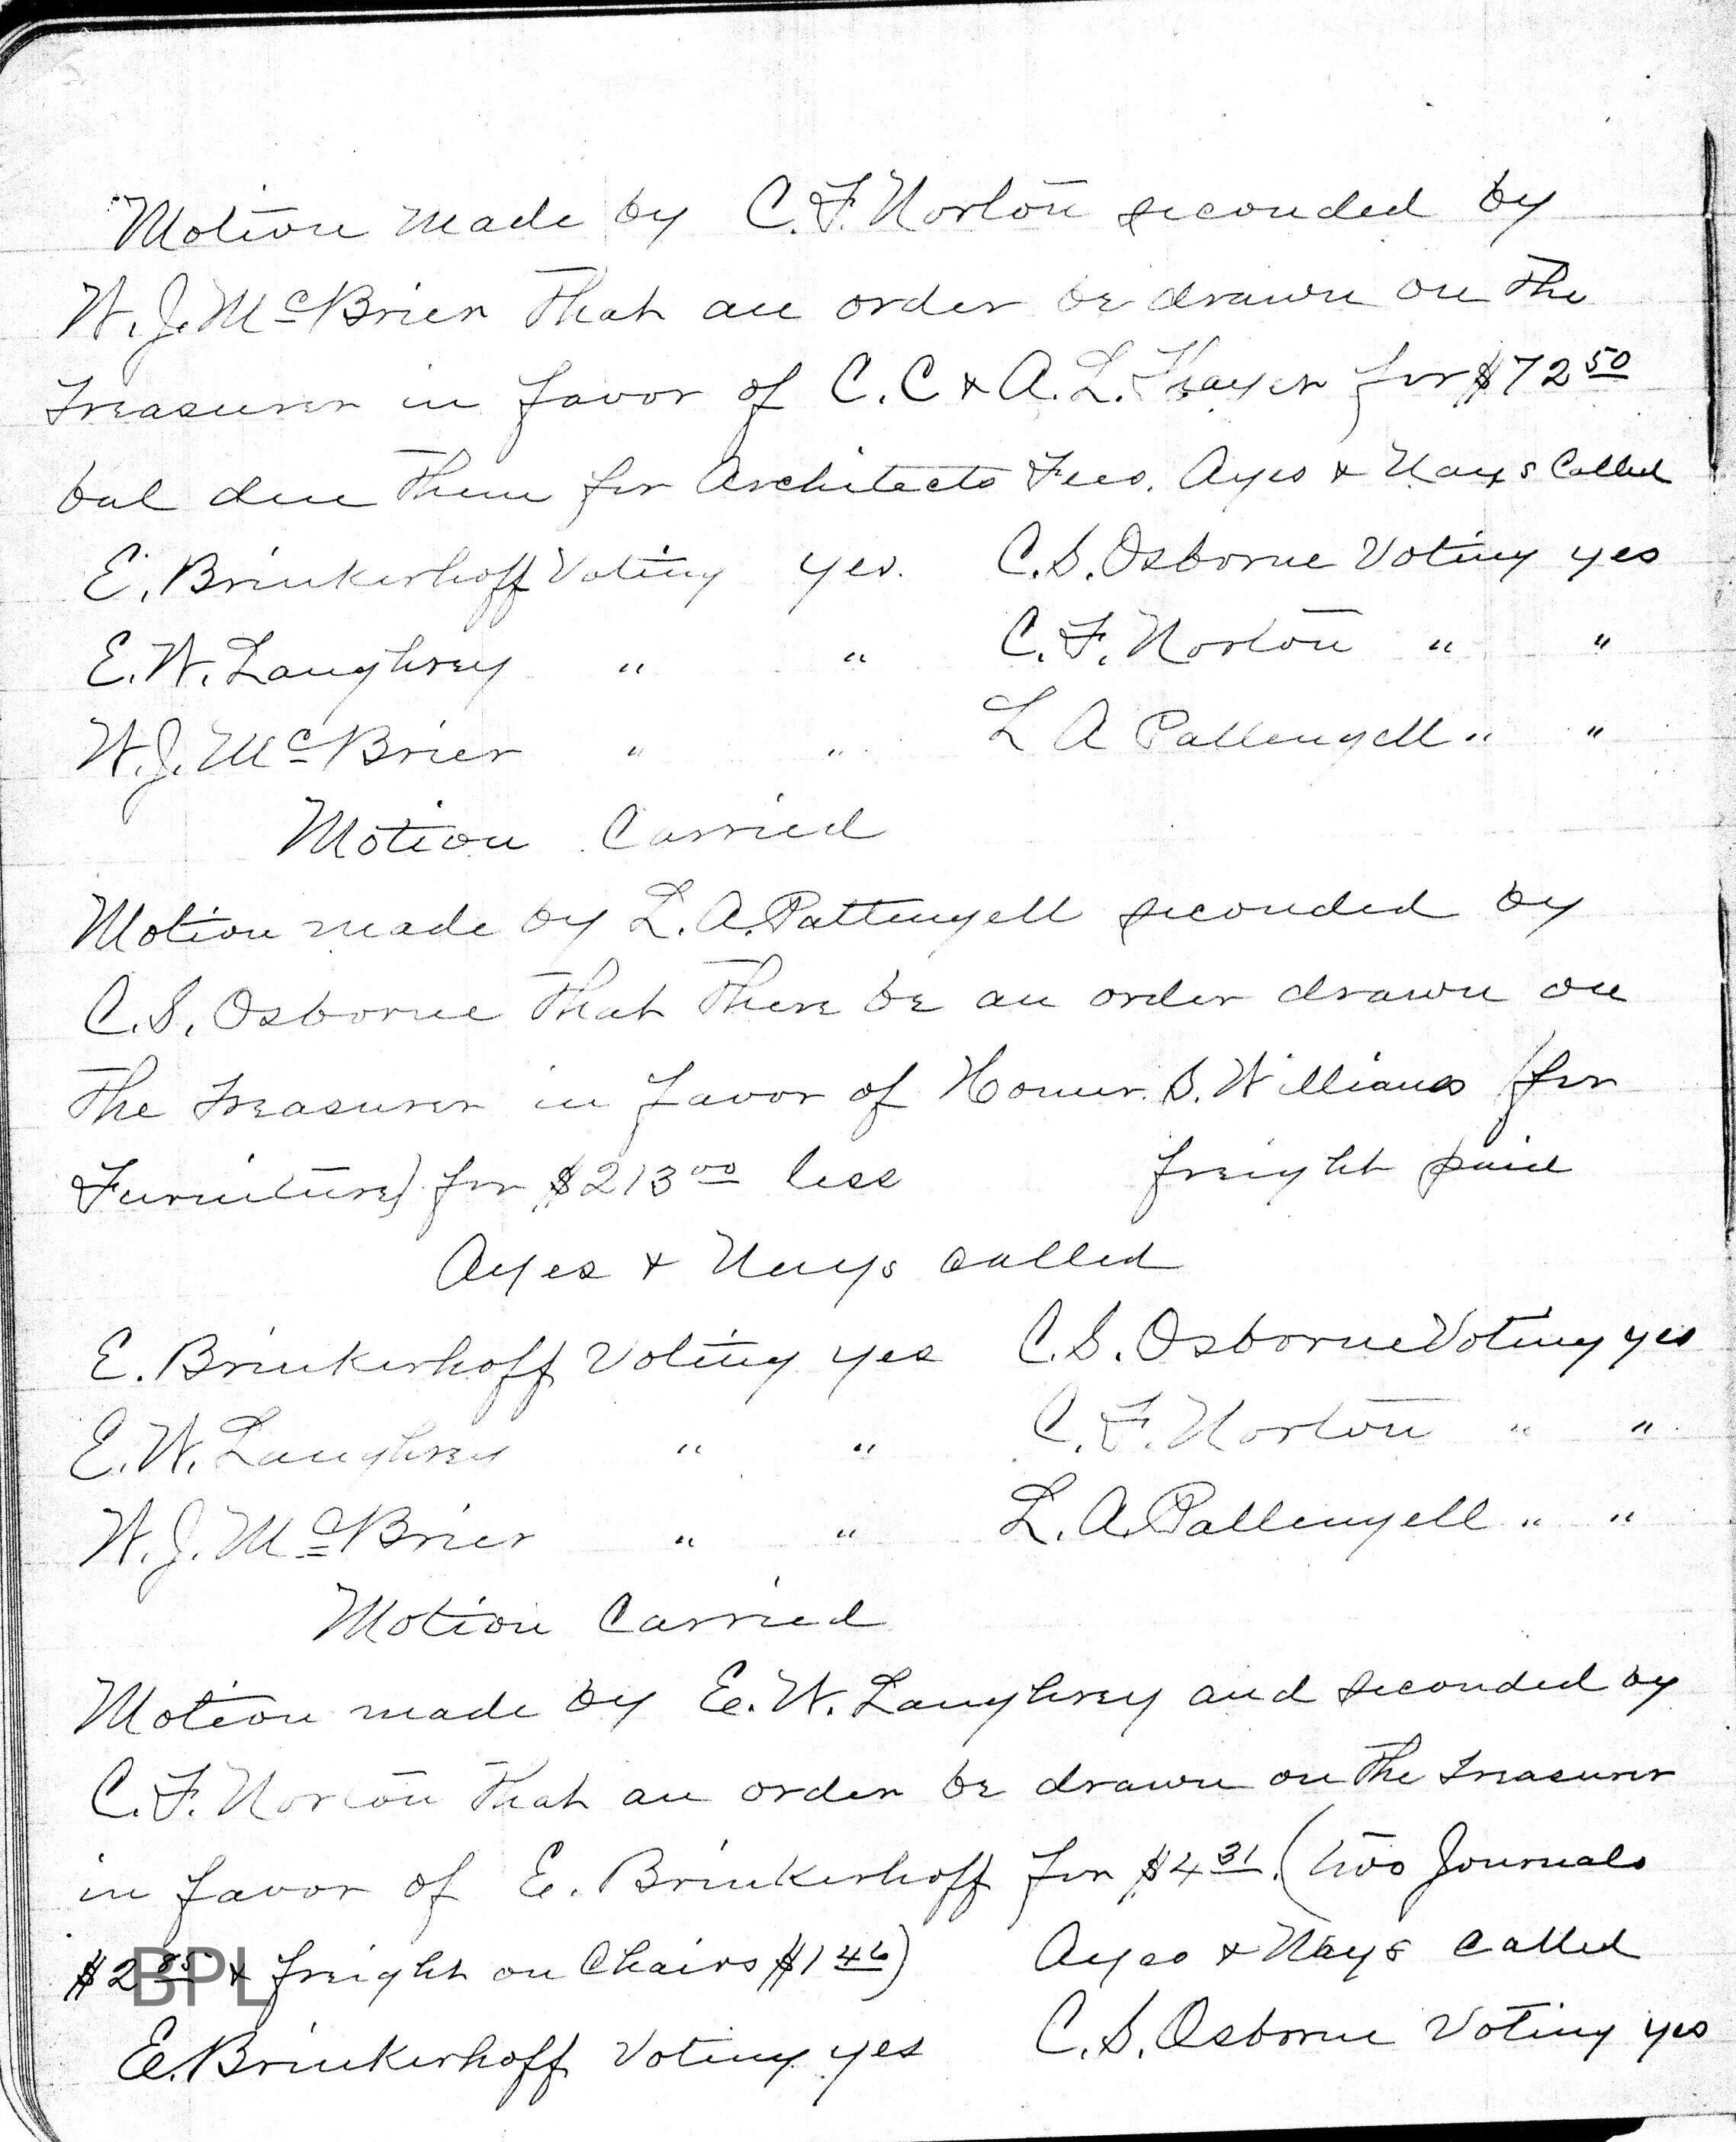 Motion made by C. F. Norton seconded by
W. J. McBrier That an order be drawn on The
Treasurer in favor of C. C & A. L. Thayer for $72 50
bal due Them for Architects Fees. Ayes & Nays Called
E. Brinkerhoff Voting yes. C. S. Osborne Voting yes
E. W. Laughrey " " C. F. Norton " "
W. J. McBrier " " L A Pattengell " "
Motion Carried
Motion made by L. A. Pattengell seconded by
C. S. Osborne That There be an order drawn on
The Treasurer in favor of Homer S. Williams (for
Furniture) for $213 00 less freight paid
Ayes & Nays called
E. Brinkerhoff Voting yes C. S. Osborne Voting yes
E. W. Laughrey " " C. F. Norton " "
W. J. McBrier " " L. A. Pattengell " "
Motion Carried
Motion made by E. W. Laughrey and seconded by
C. F. Norton That an order be drawn on The Treasurer
in favor of E. Brinkerhoff for $4 31. (two Journals
$2 85 & freight on Chairs $1 46) Ayes & Nays called
BPL
E. Brinkerhoff Voting yes C. S. Osborne Voting yes